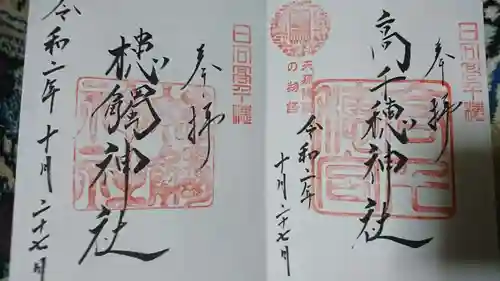 日向高千穂
奉拝
高千穂神社
令和二年
十月二十七日
日向高千穂
奉拝
槵觸神社
令和二年十月二十七日